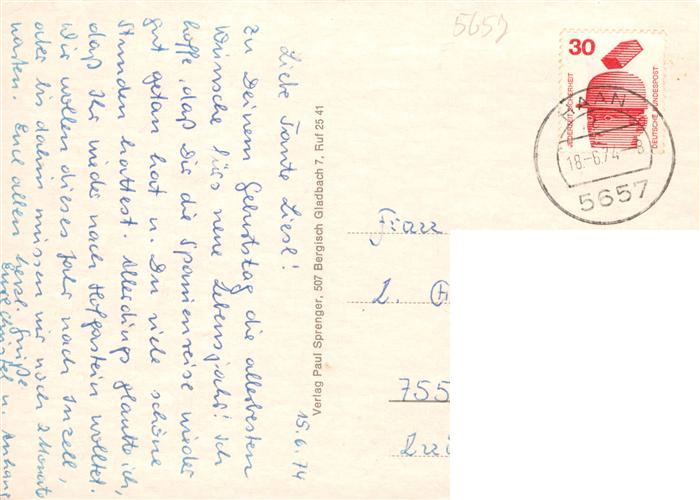 15.6.74
Liebe Tante Liesl!
Zu Deinem Geburtstag die allerbesten
Wünsche fürs neue Lebensjahr! Ich
hoffe, daß Dir die Spanienreise wieder
gut getan hat u. Du viele schöne
Stunden hattest. Allerdings glaubte ich,
daß Ihr wieder nach Hofgastein wolltet.
Wir wollen dieses Jahr nach Inzell,
aber bis dahin müssen wir noch 2 Monate
warten. Euch allen herzl. Grüße
Eure u. Anhang
Verlag Paul Sprenger, 507 Bergisch Gladbach 7, Ruf 25 41
30
JEDERZEIT SICHERHEIT
DEUTSCHE BUNDESPOST
HAAN
18.-6.74-8
5657
Frau
L.
755